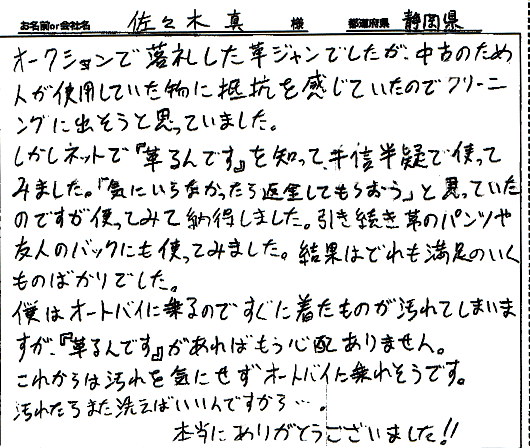 お名前or会社名 佐々木 真 様 都道府県 静岡県
オークションで落札した革ジャンでしたが、中古のため
人が使用していた物に抵抗を感じていたのでクリーニ
ングに出そうと思っていました。
しかしネットで『革るんです』を知って、半信半疑で使って
みました。「気にいらなかったら返金してもらおう」と思っていた
のですが使ってみて納得しました。引き続き革のパンツや
友人のバックにも使ってみました。結果はどれも満足のいく
ものばかりでした。
僕はオートバイに乗るのですぐに着たものが汚れてしまいま
すが、『革るんです』があればもう心配ありません。
これからは汚れを気にせずオートバイに乗れそうです。
汚れたらまた洗えばいいんですから…。
本当にありがとうございました!!